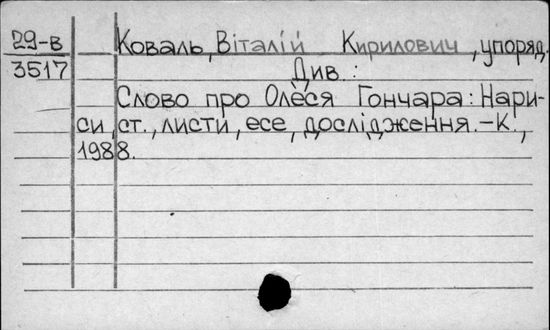 29-в Коваль, Віталій Кирилович, упоряд.
3517 Див:
Слово про Олеся Гончара: Нари-
си, ст., листи, есе, дослідження.-К.,
1988.